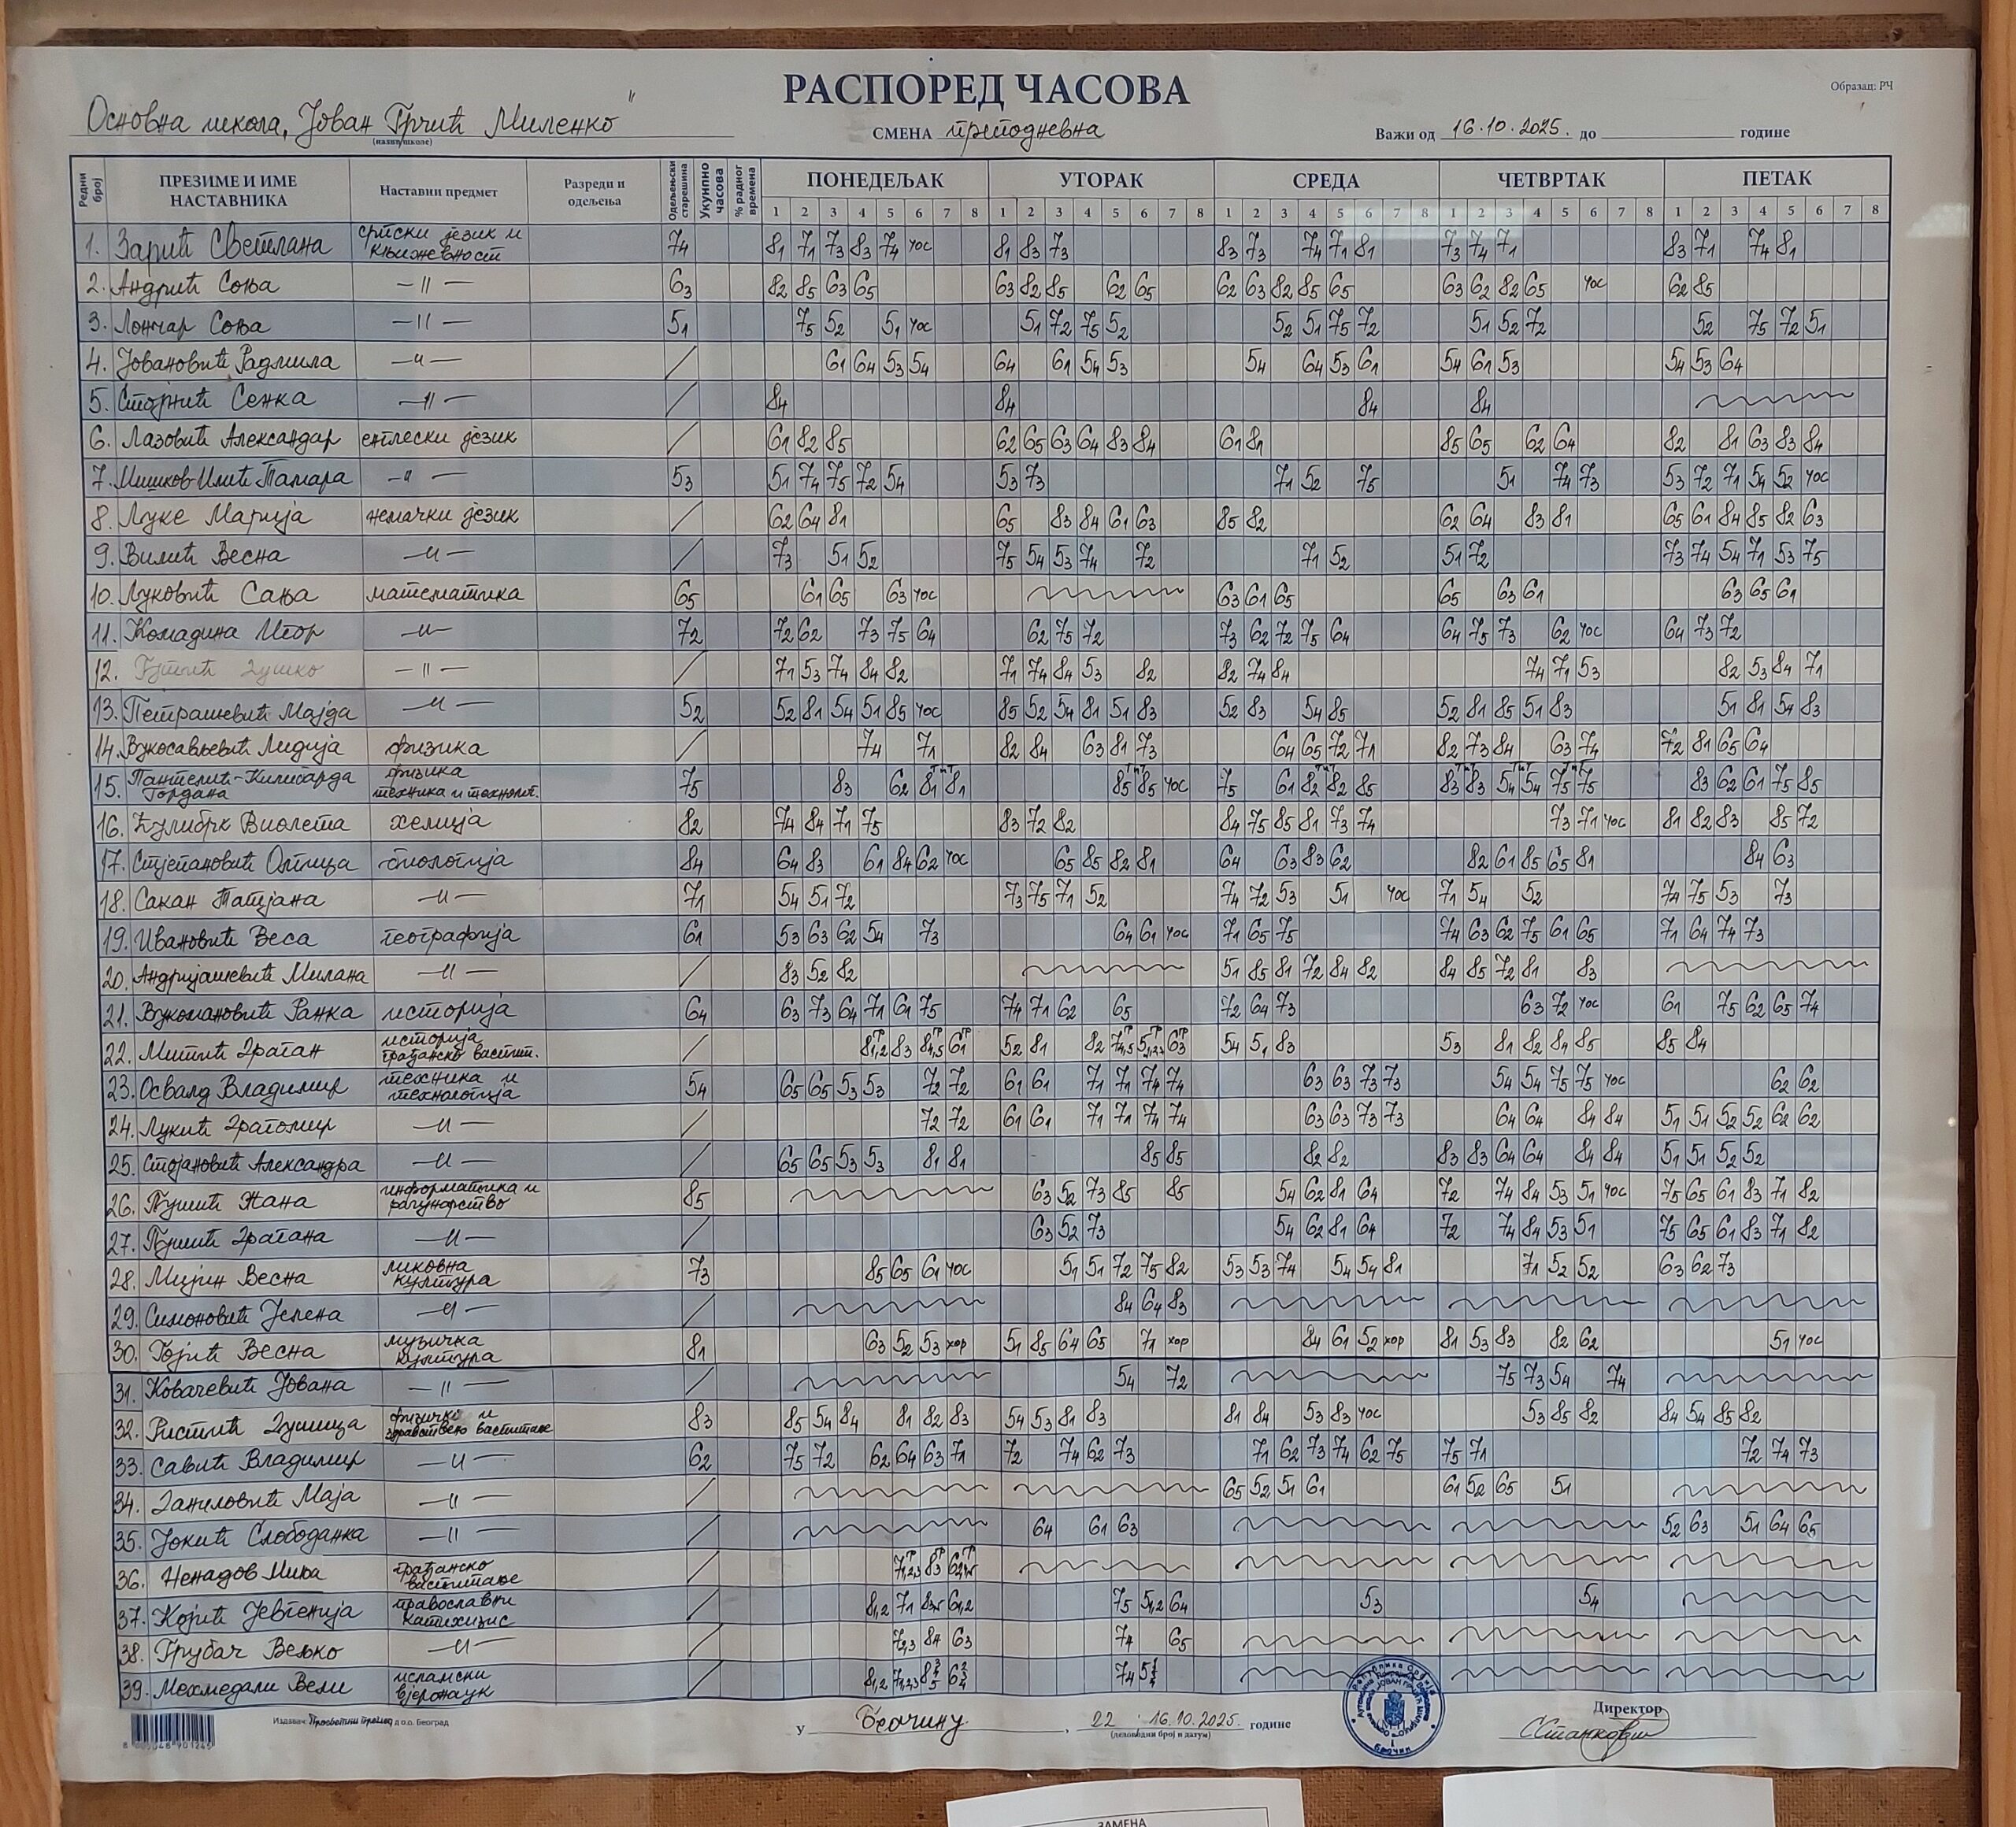 РАСПОРЕД ЧАСОВА
Образац: РЧ
Основна школа „Јован Грчић Миленко"
(назив школе)
СМЕНА преподневна
Важи од 16.10.2025. до године
Редни број ПРЕЗИМЕ И ИМЕ НАСТАВНИКА Наставни предмет Разреди и одељења Одељењски старешина Укупно часова % радног времена ПОНЕДЕЉАК УТОРАК СРЕДА ЧЕТВРТАК ПЕТАК
1 2 3 4 5 6 7 8 1 2 3 4 5 6 7 8 1 2 3 4 5 6 7 8 1 2 3 4 5 6 7 8 1 2 3 4 5 6 7 8
1. Зарић Светлана српски језик и књижевност 74 81 71 73 83 74 ЧОС 81 83 73 83 73 74 71 81 73 74 71 83 71 74 81
2. Андрић Соња –||– 63 82 85 63 65 63 82 85 62 65 62 63 82 85 65 63 62 82 65 ЧОС 62 85
3. Лончар Соња –||– 51 75 52 51 ЧОС 51 72 75 52 52 51 75 72 51 52 72 52 75 72 51
4. Јовановић Радмила –||– / 61 64 53 54 64 61 54 53 54 64 53 61 54 61 53 54 53 64
5. Сенка –||– / 84 84 84 84
6. Лазовић Александар енглески језик / 61 82 85 62 65 63 64 83 84 61 81 85 65 62 64 82 81 63 83 84
7. Мишков-Илић Тамара –||– 53 51 74 75 72 54 53 73 71 52 75 51 74 73 53 72 71 54 52 ЧОС
8. Луке Марија немачки језик / 62 64 81 65 83 84 61 63 85 82 62 64 83 81 65 61 84 85 82 63
9. Вилић Весна –||– / 73 51 52 75 54 53 74 72 71 52 51 72 73 74 54 71 53 75
10. Луковић Сања математика 65 61 65 63 ЧОС 63 61 65 65 63 61 63 65 61
11. Комадина Игор –||– 72 72 62 73 75 64 62 75 72 73 62 72 75 64 64 75 73 62 ЧОС 64 73 72
12. Душко –||– / 71 53 74 84 82 71 74 84 53 82 82 74 84 74 71 53 82 53 84 71
13. Петрашевић Мајда –||– 52 52 81 54 51 85 ЧОС 85 52 54 81 51 83 52 83 54 85 52 81 85 51 83 51 81 54 83
14. Вукосављевић Лидија физика / 74 71 82 84 63 81 73 64 65 72 71 82 73 84 63 74 72 81 65 64
15. Пантелић-Килибарда Гордана физика техника и технолог. 75 83 62 81 81 85 85 ЧОС 75 61 82 82 85 83 83 54 54 75 75 83 62 61 75 85
16. Ћулибрк Виолета хемија 82 74 84 71 75 83 72 82 84 75 85 81 73 74 73 71 ЧОС 81 82 83 85 72
17. Стјепановић Олгица биологија 84 64 83 61 84 62 ЧОС 65 85 82 81 64 63 83 62 82 61 85 65 81 84 63
18. Сакан Татјана –||– 71 54 51 72 73 75 71 52 74 72 53 51 ЧОС 71 54 52 74 75 53 73
19. Ивановић Веса географија 61 53 63 62 54 73 64 61 ЧОС 71 65 75 74 63 62 75 61 65 71 64 74 73
20. Андријашевић Милана –||– / 83 52 82 51 85 81 72 84 82 84 85 72 81 83
21. Вукомановић Ранка историја 64 63 73 64 71 61 75 74 71 62 65 72 64 73 63 72 ЧОС 61 75 62 65 74
22. Митић Драган историја грађанско васпит. / 81,2 83 84,5 61 52 81 82 74,5 63 54 51 83 53 81 82 84 85 85 84
23. Освалд Владимир техника и технологија 54 65 65 53 53 72 72 61 61 71 71 74 74 63 63 73 73 54 54 75 75 ЧОС 62 62
24. Лукић Драгомир –||– / 72 72 61 61 71 71 74 74 63 63 73 73 64 64 84 84 51 51 52 52 62 62
25. Стојановић Александра –||– / 65 65 53 53 81 81 85 85 82 82 83 83 64 64 84 84 51 51 52 52
26. Жана информатика и рачунарство 85 63 52 73 85 85 54 62 81 64 72 74 84 53 51 ЧОС 75 65 61 83 71 82
27. Драгана –||– / 63 52 73 54 62 81 64 72 74 84 53 51 75 65 61 83 71 82
28. Мијин Весна ликовна култура 73 85 65 61 ЧОС 51 51 72 75 82 53 53 74 54 54 81 71 52 52 63 62 73
29. Симоновић Јелена –||– / 84 64 83
30. Гојић Весна музичка култура 81 63 52 53 хор 51 85 64 65 71 хор 84 61 52 хор 81 53 83 82 62 51 ЧОС
31. Ковачевић Јована –||– / 54 72 75 73 54 74
32. Ристић Душица физичко и здравствено васпитање 83 85 54 84 81 82 83 54 53 81 83 81 84 53 83 ЧОС 53 85 82 84 54 85 82
33. Савић Владимир –||– 62 75 72 62 64 63 71 72 74 62 73 71 62 73 74 62 75 75 71 72 74 73
34. Даниловић Маја –||– / 65 52 51 61 61 52 65 51
35. Јокић Слободанка –||– / 64 61 63 52 63 51 64 65
36. Ненадов Миња грађанско васпитање / 71,2,3 83
37. Којић Јевгенија православни катихизис / 81,2 71 61,2 75 51,2 64 53 54
38. Грубач Вељко –||– / 72,3 84 63 74 65
39. Мехмедали Вели исламски вјеронаук / 81,2 71,2,3 74
Издавач: Просветни преглед д.о.о. Београд
У Беочину, 22 16.10.2025. године
(деловодни број и датум)
Директор
ССтанковић
ЗАМЕНА